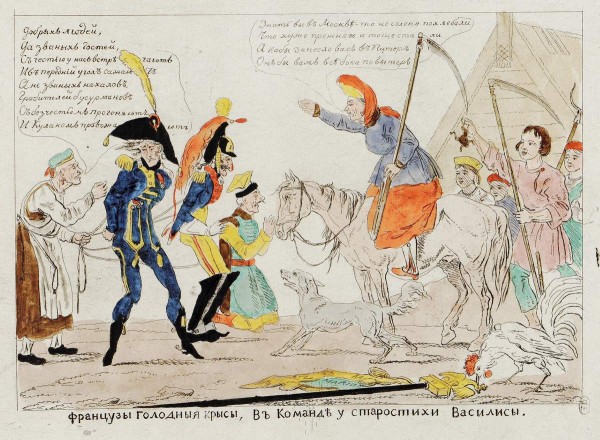 Добрыхъ людей,
Да званыхъ гостей,
Съ честью у насъ встр чаютъ
И въ передній уголъ сажа тъ
А не званыхъ нахаловъ
Грабителей бусурмановъ
Съ безчестіемъ прогоня ютъ
И Кулакомъ провожа ютъ
Знать вы въ Москвѣ-то не солоно похлебали
Что хуже прежняго и тощѣе стали
А кабы занесло васъ въ Питеръ
Онъ бы вамъ всѣ бока повытеръ
французы голодныя крысы, въ Командѣ у старостихи Василисы.